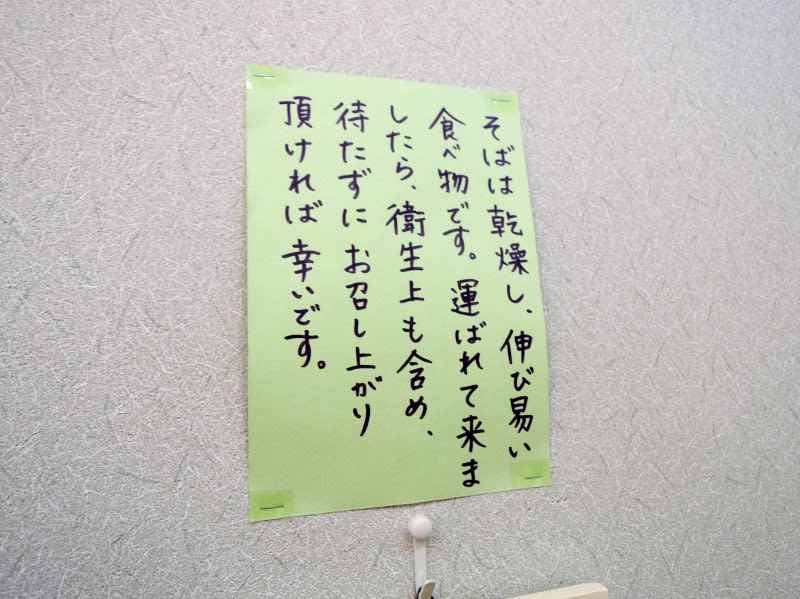 そばは乾燥し、伸び易い
食べ物です。運ばれて来ま
したら、衛生上も含め、
待たずにお召し上がり
頂ければ幸いです。